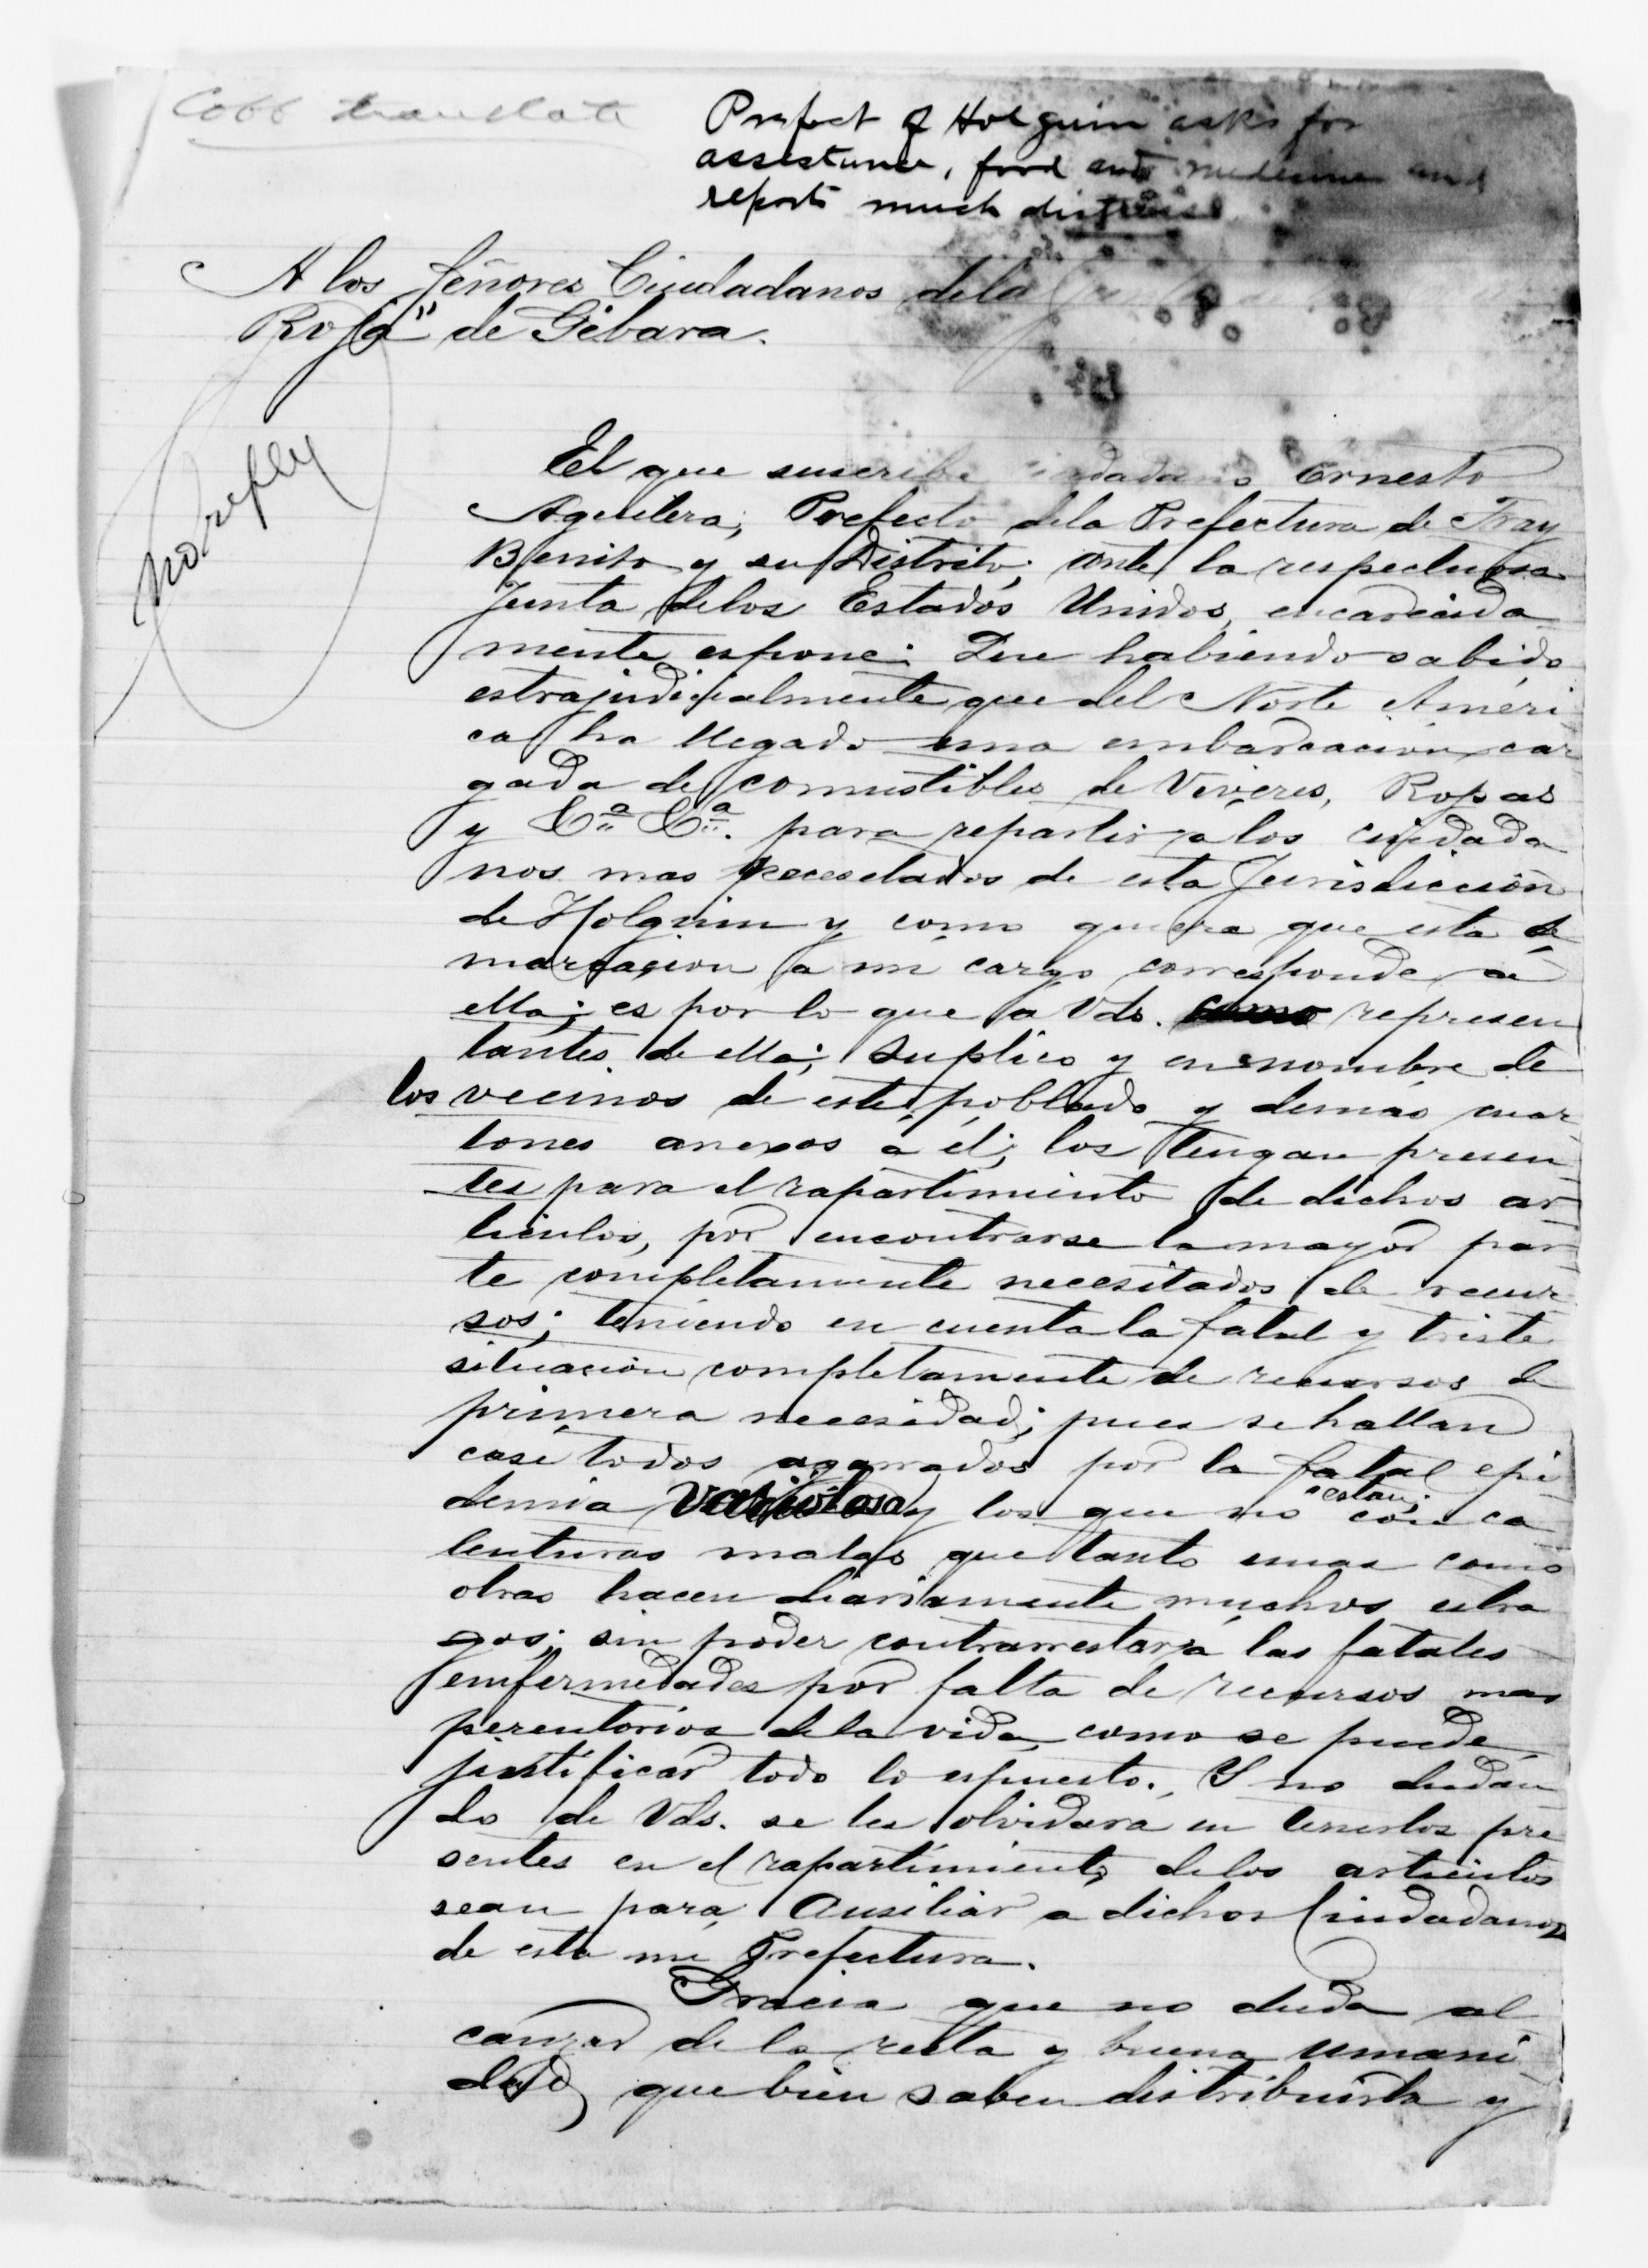 Cobb translate
Prefect of Holguin asks for
assistance, food and medicine and
reports much distress
A los Señores Ciudadanos dela
Roja" de Gibara.
No reply
El que suscribe Ciudadano Ernesto
Aguilera; Prefecto dela Prefectura de Fray
Benito y su Distrito; ante la respectuosa
Junta delos Estados Unidos, encarecida
mente espone: Que habiendo sabido
estrajudicialmente que del Norte Améri
ca ha llegado una embarcación car
gada de comustibles de Viveres, Ropas
y &ª &ª. para repartir a los ciudada
nos mas necesitados de esta Jurisdiccion
de Holguin y como quiera que esta de
marcacion a mi cargo corresponde a
ella; es por lo que a Vds. como represen
tantes de ella; suplico y en nombre de
los vecinos de este poblado y demás cuar
tones anexos a él; los tengan presen
tes para el rapartimiento de dichos ar
ticulos, por encontrarse la mayor par
te completamente necesitados de recur
sos; teniendo en cuenta la fatal y triste
situacion completamente de recursos de
primera necesidad; pues se hallan
casi todos agarrados por la fatal epi
demia Variolosa y los que no estan; con ca
lenturas malas que tanto unas como
otras hacen diariamente muchos estra
gos; sin poder contrarrestar a las fatales
emfermedades por falta de recursos mas
perentorios dela vida, como se puede
justificar todo lo espuesto. Y no dudan
do de Vds. se les olvidara en tenerlos pre
sentes en el rapartimiento delos articulos
sean para Ausiliar a dichos Ciudadanos
de esta mi Prefectura.
Gracia que no duda al
canzar de la recta y buena umani
dad, que bien saben distribuirla y